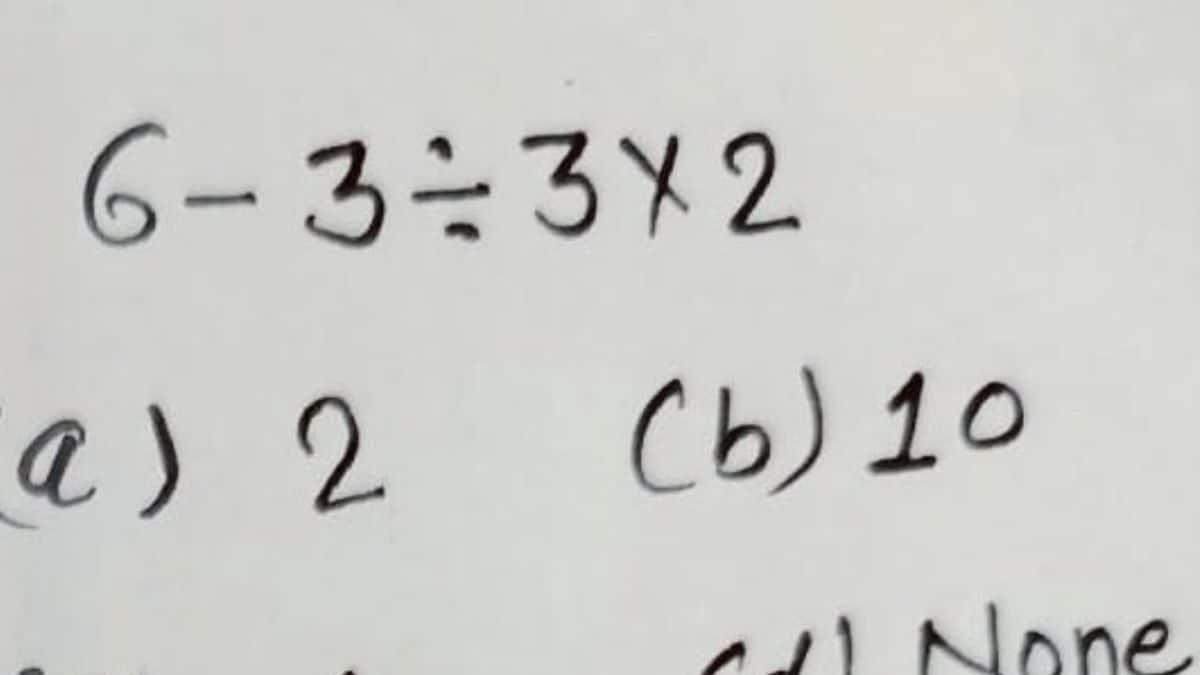 6 - 3 ÷ 3 × 2
(a) 2 (b) 10
(d) None